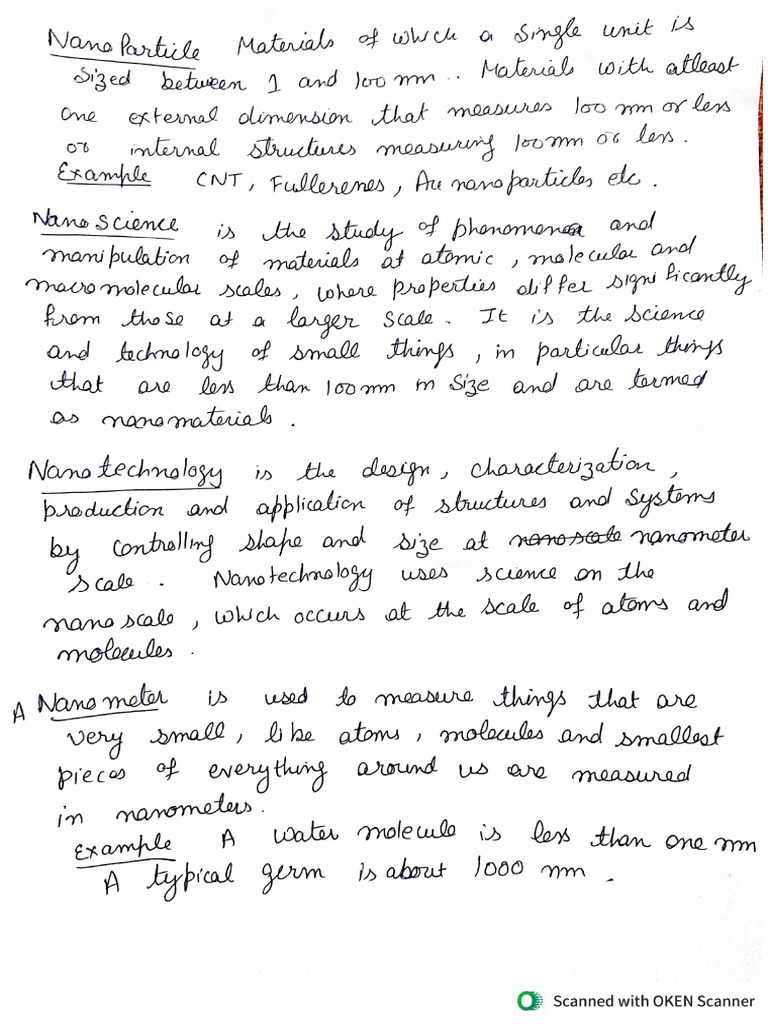 Nano Particle Materials of which a single unit is
sized between 1 and 100 nm.. Materials with atleast
one external dimension that measures 100 nm or less
or internal structures measuring 100nm or less.
Example CNT, Fullerenes, Au nanoparticles etc.
Nano science is the study of phenomena and
manipulation of materials at atomic, molecular and
macromolecular scales, where properties differ significantly
from those at a larger scale. It is the science
and technology of small things, in particular things
that are less than 100nm in size and are termed
as nanomaterials.
Nano technology is the design, characterization,
production and application of structures and systems
by controlling shape and size at nanoscale nanometer
scale. Nanotechnology uses science on the
nano scale, which occurs at the scale of atoms and
molecules.
A Nano meter is used to measure things that are
very small, like atoms, molecules and smallest
pieces of everything around us are measured
in nanometers.
Example A water molecule is less than one nm
A typical germ is about 1000 nm.
Scanned with OKEN Scanner